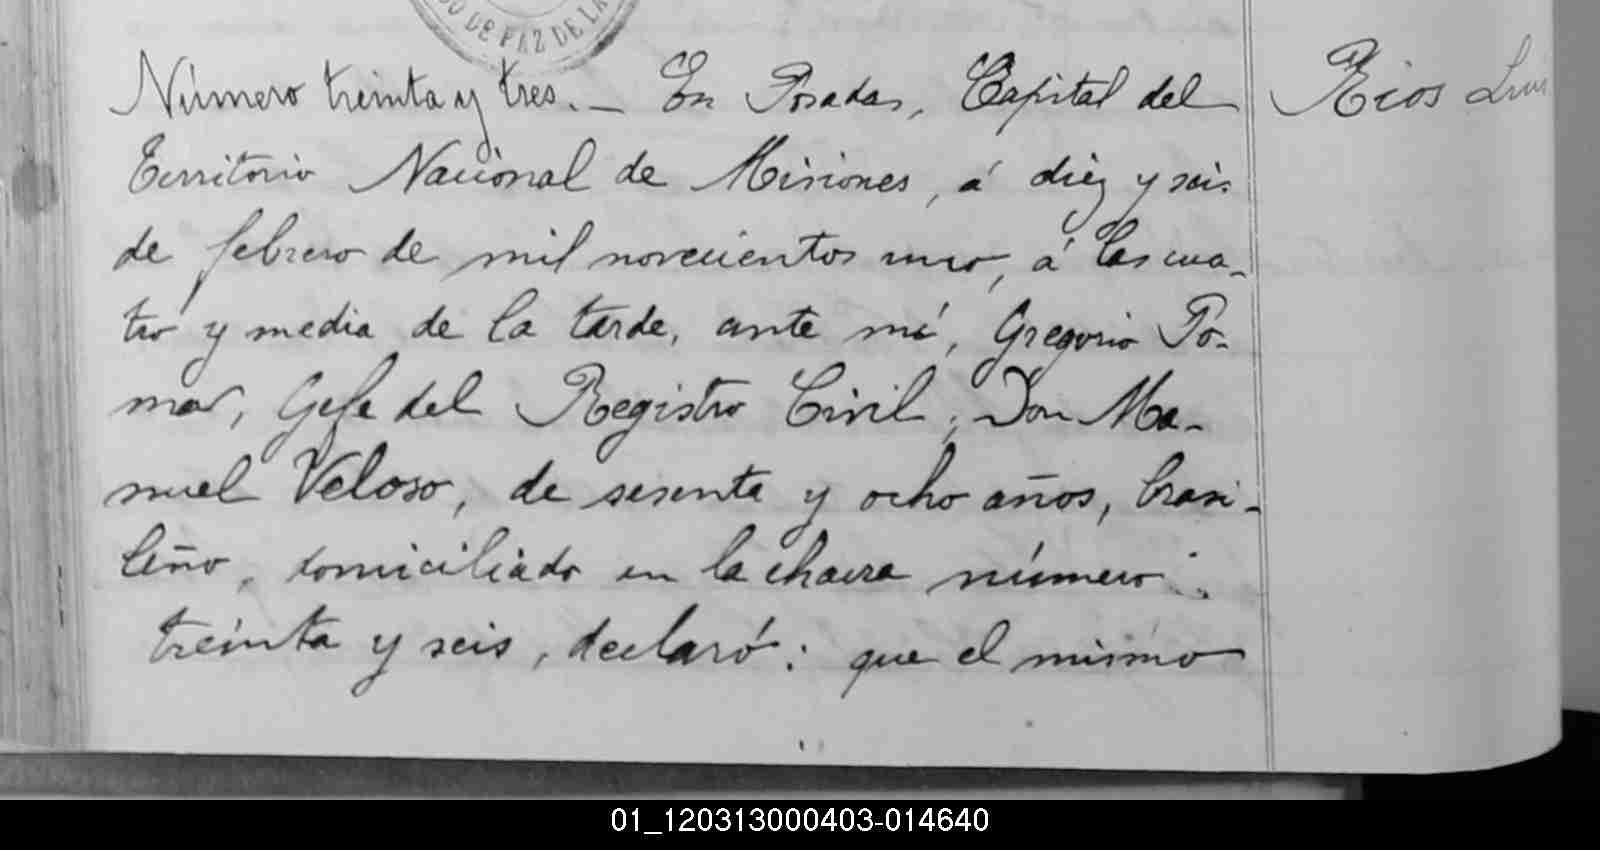 DE PAZ DE LA
Número treinta y tres. — En Posadas, Capital del
Territorio Nacional de Misiones, á diez y seis
de febrero de mil novecientos uno, á las cua-
tro y media de la tarde, ante mí, Gregorio Po-
mar, Gefe del Registro Civil, Don Ma-
nuel Veloso, de sesenta y ocho años, brasi-
leño, domiciliado en la chacra número
treinta y seis, declaró: que el mismo
Rios Luis
01_120313000403-014640